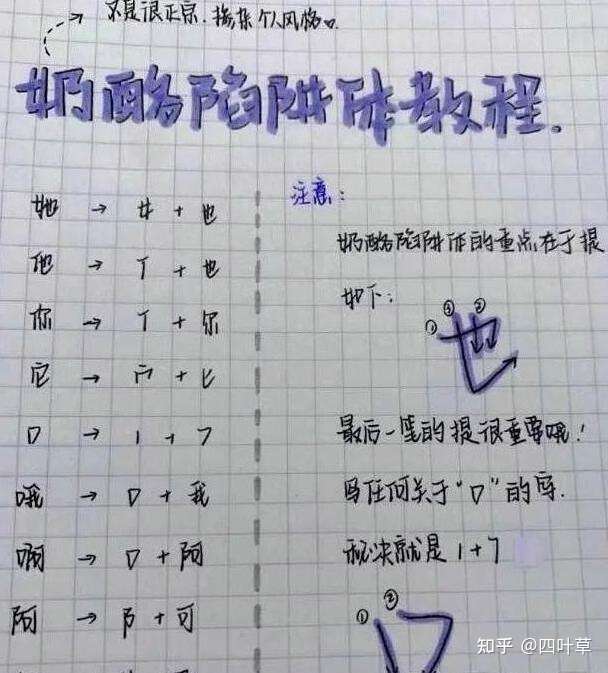 不是很正宗.掺杂个人风格。
奶酪陷阱体教程.
她 → 女 + 也
他 → 亻 + 也
你 → 亻 + 尔
它 → 宀 + 匕
口 → 1 + 7
哦 → 口 + 我
啊 → 口 + 阿
阿 → 阝 + 可
注意:
奶酪陷阱体的重点在于提
如下:
① ① ②
也
最后一笔的提很重要哦!
写任何关于“口”的字.
秘决就是 1 + 7
① ②
口
知乎 @四叶草